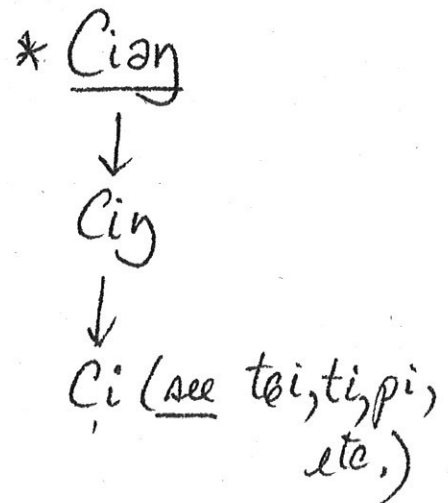 * Ciəŋ
↓
Ciŋ
↓
C̩i (see tɕi, ti, pi,
etc.)